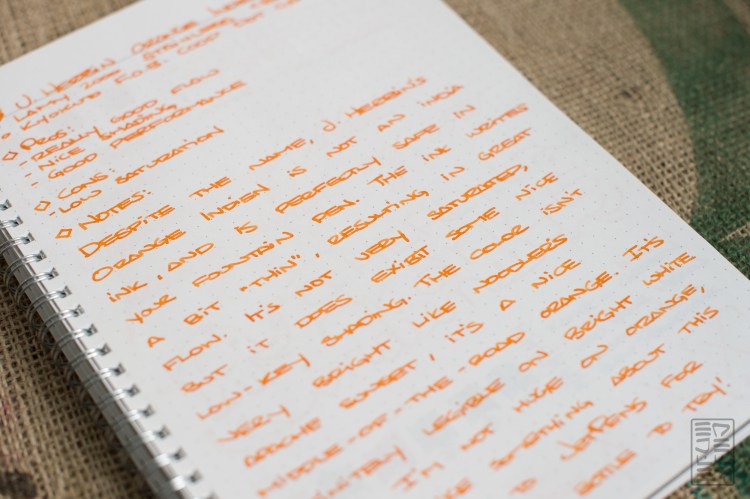 J. HERBIN ORANGE
LAMY 2000
KYOKUTO F.O.B. COOP DOT
PROS:
- REALLY GOOD FLOW
- NICE SHADING
- GOOD PERFORMANCE
CONS:
- LOW SATURATION
NOTES:
DESPITE THE NAME, J. HERBIN'S
ORANGE INDIEN IS NOT AN INDIA
INK, AND IS PERFECTLY SAFE IN
YOUR FOUNTAIN PEN. THE INK WRITES
A BIT "THIN", RESULTING IN GREAT
FLOW. IT'S NOT VERY SATURATED,
BUT IT DOES EXIBIT SOME NICE
LOW-KEY SHADING. THE COLOR ISN'T
VERY BRIGHT LIKE NOODLER'S
APACHE SUNSET, IT'S A NICE
MIDDLE-OF-THE-ROAD ORANGE. IT'S
LEGIBLE ON BRIGHT WHITE
I'M NOT HUGE ON ORANGE,
SOMETHING ABOUT THIS
TO JETPENS FOR
BOTTLE TO TRY!